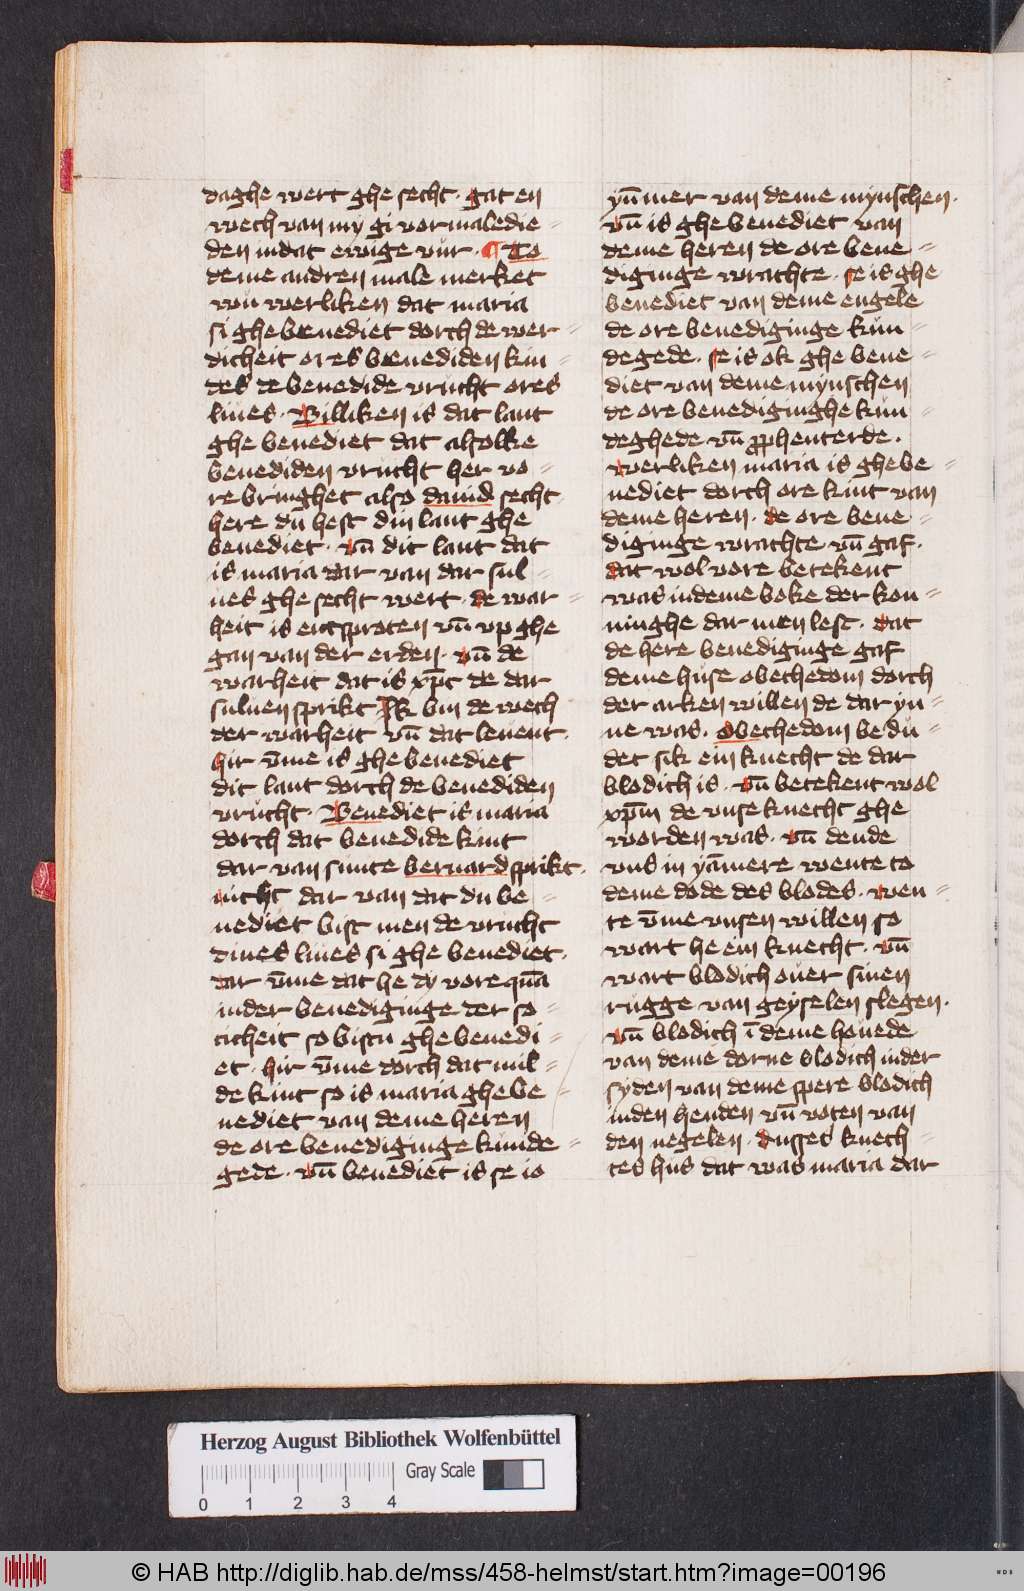 daghe wert ghe secht. gat en
wech van my gi vormaledie-
den in dat ewige vür. ¶ To
deme andren male merket
wu werliken dat maria
si ghebenediet dorch de wer-
dicheit ores benediden kin-
des de benedide vrucht ores
liues. Billiken is dat lant
ghe benediet dat alsolke
benediden vrucht her vo-
re bringhet also dauid secht
here du hest din lant ghe
benediet. vn̄ dit lant dat
is maria dar van dar sul-
ues ghe secht wert. de war-
heit is entsproten vn̄ vp ghe
gan van der erden. vn̄ de
warheit dat is xp̄c de dar
suluen sprikt Ik bin de wech
der warheit vn̄ dat leuent.
hir v̄me is ghe benediet
dit lant dorch de benediden
vrucht. Benediet is maria
dorch dat benedide kint
dar van sunte bernard sprikt.
nicht dar van dat du be-
nediet bist men de vrucht
dines liues si ghe benediet.
dar v̄me dat he dy vore quā
in der benediginge der so-
ticheit so bistu ghe benedi-
et. hir v̄me dorch dat mil-
de kint so is maria ghe be-
nediet van deme heren
de ore benediginge kunde-
gede. vn̄ benediet is se io
yūmer van deme mynschen.
vn̄ is ghe benediet van
deme heren de ore bene-
diginge wrachte. se is ghe
benediet van deme engele
de ore benediginge kun-
degede. se is ok ghe bene-
diet van deme mynschen
de ore benediginghe kun-
deghede vn̄ ꝓphenterde.
werliken maria is ghe be-
nediet dorch ore kint van
deme heren. de ore bene-
diginge wrachte vn̄ gaf.
dat wol vore betekent
was in deme boke der kon-
ninghe dar men lest. dat
de here benediginge gaf
deme huse obechedom dorch
der arken willen de dar yn-
ne was. obechedom bedu-
det sik ein knecht de dar
blodich is. vn̄ betekent wol
xp̄m de vnse knecht ghe
worden was. vn̄ dende
vns in yāmere wente to
deme dode des blodes. wen-
te v̄me vnsen willen so
wart he ein knecht. vn̄
wart blodich ouer sinen
rugge van geyselen slegen.
vn̄ blodich ī deme houede
van deme dorne blodich in der
syden van deme spere blodich
in den henden vn̄ voten van
den negelen. dusses knech-
tes hus dat was maria dar
Herzog August Bibliothek Wolfenbüttel
Gray Scale
0 1 2 3 4
© HAB http://diglib.hab.de/mss/458-helmst/start.htm?image=00196